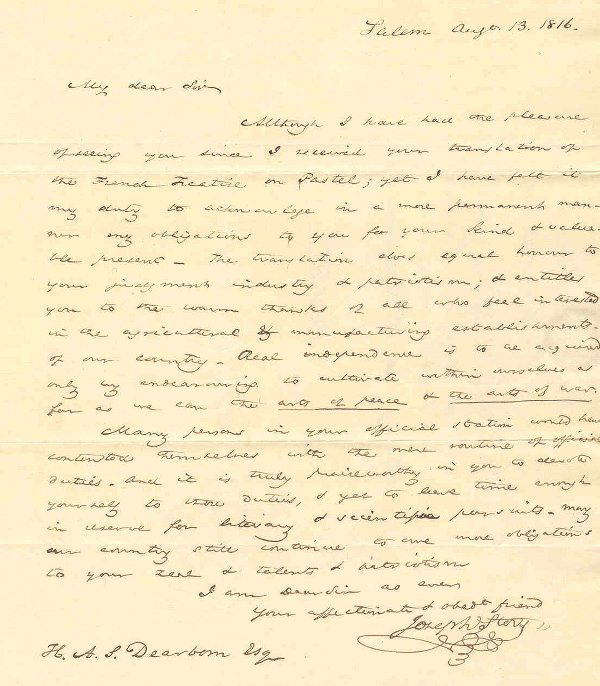 Salem Augt. 13. 1816.
My dear Sir
Although I have had the pleasure
of seeing you since I received your translation of
the French Treatise on Pastel; yet I have felt it
my duty to acknowledge in a more permanent man-
ner my obligations to you for your kind & valua-
ble present - The translation does equal honour to
your judgment industry & patriotism; & entitles
you to the warm thanks of all who feel interested
in the agricultural & manufacturing establishments
of our country - Real independence is to be acquired
only by endeavouring to cultivate within ourselves as
far as we can the arts of peace & the arts of war.
Many persons in your official station would have
contented themselves with the mere routine of official
duties. And it is truly praiseworthy in you to devote
yourself to those duties, & yet to leave time enough
in reserve for literary & scientific pursuits - may
our country still continue to owe more obligations
to your zeal & talents & patriotism
I am Dear Sir as ever
Your affectionate & obedt friend
Joseph Story
H. A. S. Dearborn Esq